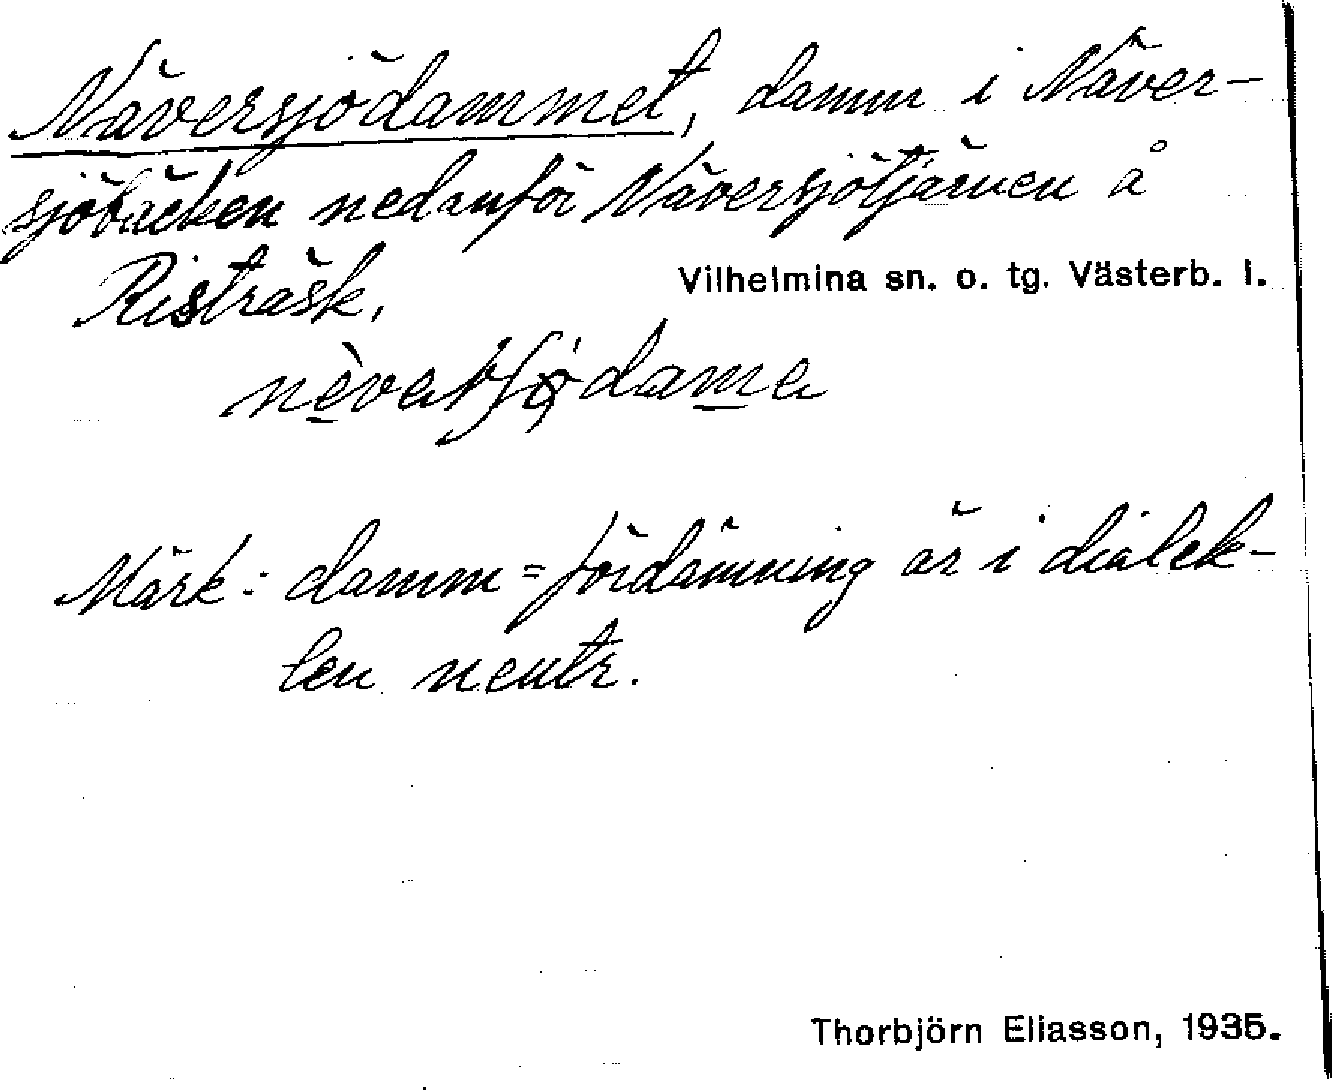 Näversjödammet, damm i Näver-
sjöbäcken nedanför Näversjötjärnen å
Risträsk,
Vilhelmina sn. o. tg. Västerb. l.
Märk: damm = fördämning är i dialek-
ten neutr.
Thorbjörn Eliasson, 1935.